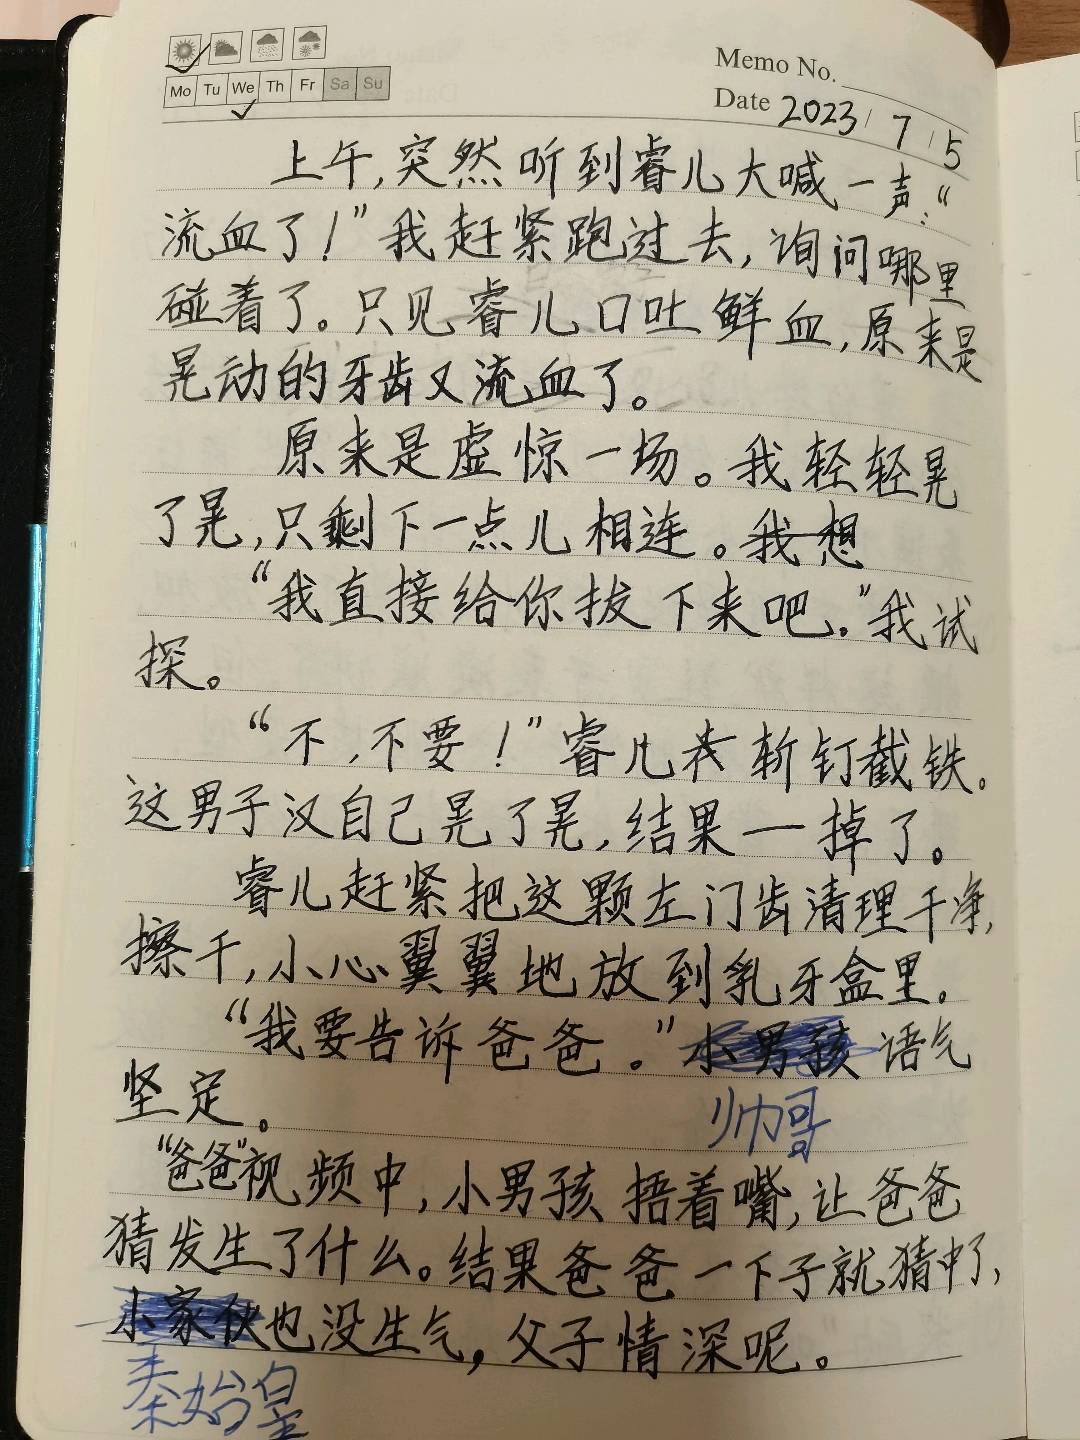 Memo No.
Mo Tu We Th Fr Sa Su
Date 2023/7/5
上午,突然听到睿儿大喊一声:“
流血了!”我赶紧跑过去,询问哪里
碰着了。只见睿儿口吐鲜血,原来是
晃动的牙齿又流血了。
原来是虚惊一场。我轻轻晃
了晃,只剩下一点儿相连。我想
“我直接给你拔下来吧。”我试
探。
“不,不要!”睿儿斩钉截铁。
这男子汉自己晃了晃,结果一掉了。
睿儿赶紧把这颗左门齿清理干净,
擦干,小心翼翼地放到乳牙盒里。
“我要告诉爸爸。”小男孩语气
帅哥
坚定。
“爸爸”视频中,小男孩捂着嘴,让爸爸
猜发生了什么。结果爸爸一下子就猜中了,
小家伙也没生气,父子情深呢。
秦始皇